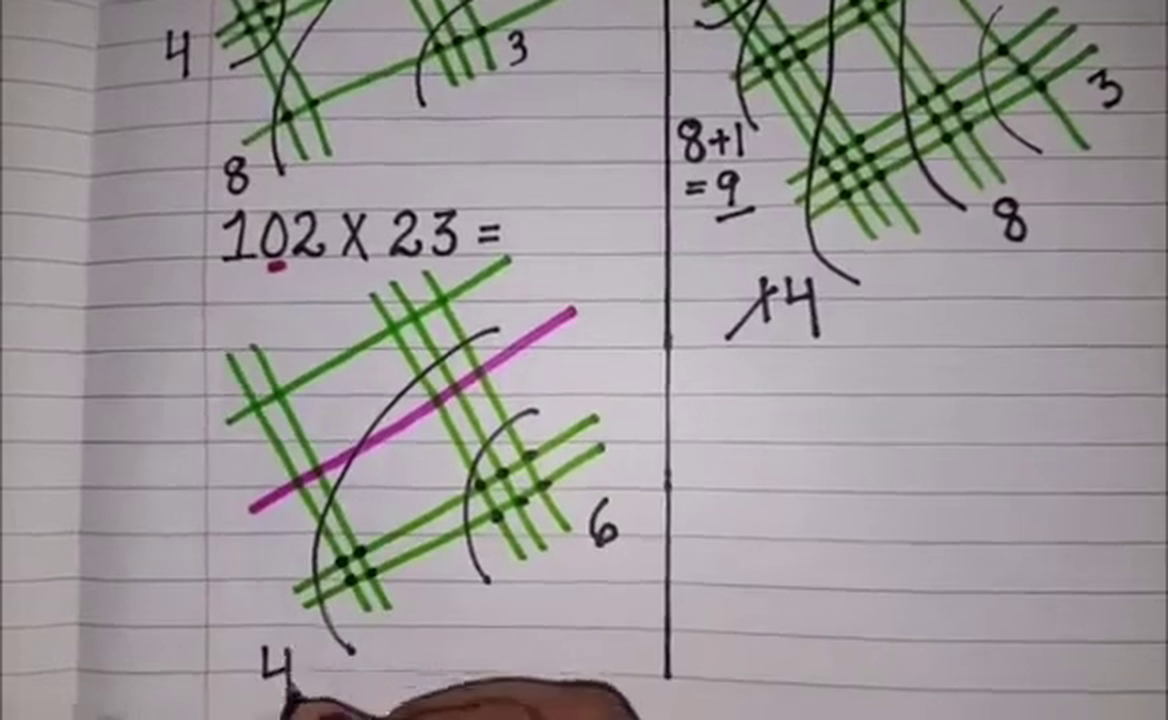 4
3
8
102 X 23 =
6
4
3
8+1
= 9
8
14